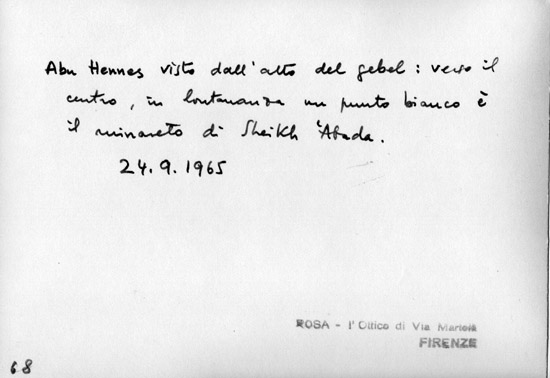 Abu Hennes visto dall'alto del gebel: verso il
centro, in lontananza un punto bianco è
il minareto di Sheikh 'Abada.
24.9.1965
ROSA - l'Ottico di Via Martelli
FIRENZE
68